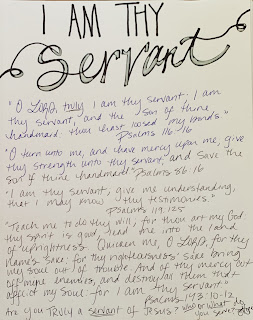 I AM THY
Servant
"O LORD, truly I am thy servant; I am
thy servant, and the son of thine
handmaid: thou hast loosed my bonds."
Psalms 116:16
"O turn unto me, and have mercy upon me; give
thy strength unto thy servant, and save the
son of thine handmaid." Psalms 86:16
"I am thy servant; give me understanding,
that I may know thy testimonies."
Psalms 119:125
"Teach me to do thy will; for thou art my God:
thy spirit is good; lead me into the land
of uprightness. Quicken me, O LORD, for thy
name's sake: for thy righteousness' sake bring
my soul out of trouble. And of thy mercy cut
off mine enemies, and destroy all them that
afflict my soul: for I am thy servant."
Psalms 143:10-12
Are you TRULY a servant of JESUS? Who or what do
you serve?